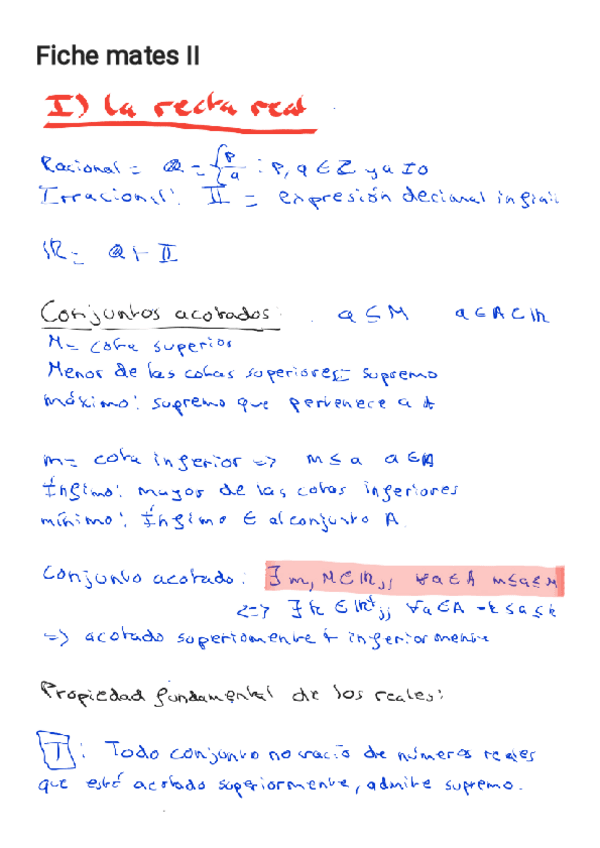 Fiche mates II
I) La recta real
Racional = Q = { p/q : p, q ∈ Z y q ≠ 0
Irracional: II = expresión decimal infini
IR = Q + II
Conjuntos acotados: a ≤ M a ∈ A ⊂ IR
M = cota superior
Menor de las cotas superiores = supremo
máximo: supremo que pertenece a A
m = cota inferior => m ≤ a a ∈ A
Ínfimo: mayor de las cotas inferiores
mínimo: Ínfimo ∈ al conjunto A.
Conjunto acotado: ∃ m, M ∈ IR,, ∀a ∈ A m ≤ a ≤ M
<=> ∃ k ∈ IR⁺,, ∀a ∈ A -k ≤ a ≤ k
=> acotado superiormente + inferiormente
Propiedad fundamental de los reales:
T: Todo conjunto no vacío de números reales
que esté acotado superiormente, admite supremo.